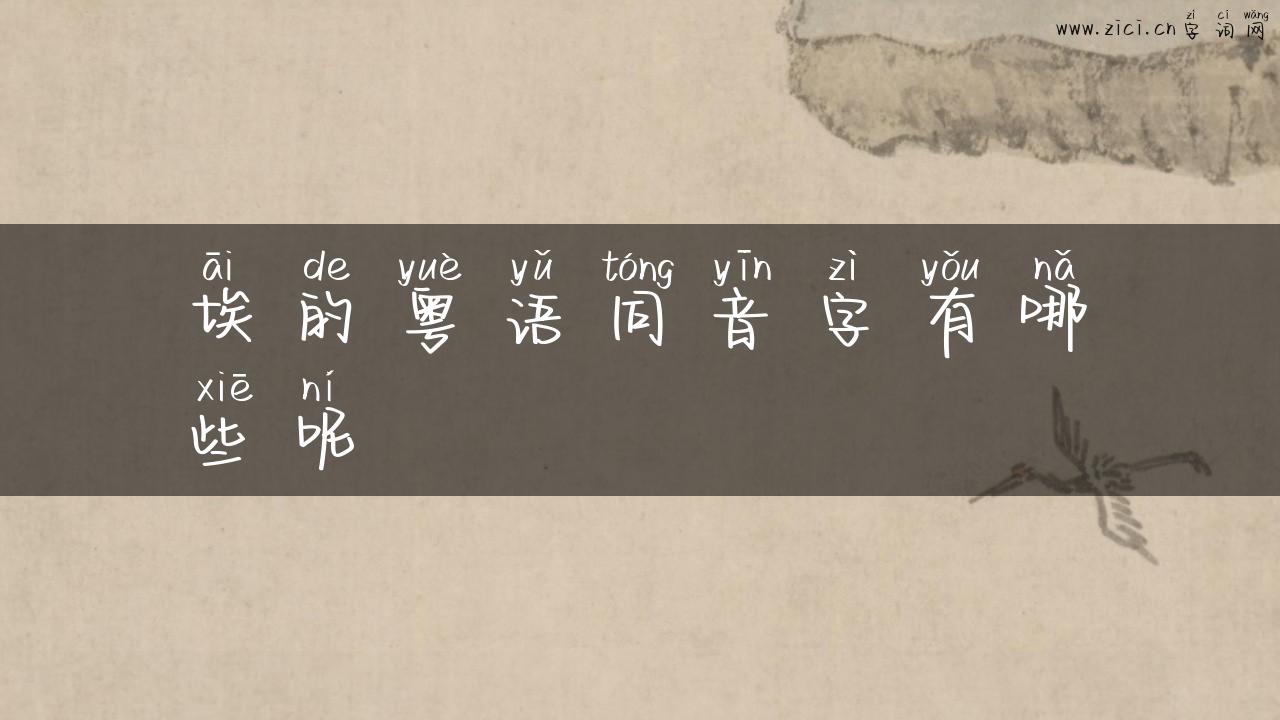 zì cí wǎng
www.zici.cn 字词网
āi de yuè yǔ tóng yīn zì yǒu nǎ
埃的粤语同音字有哪
xiē ní
些呢